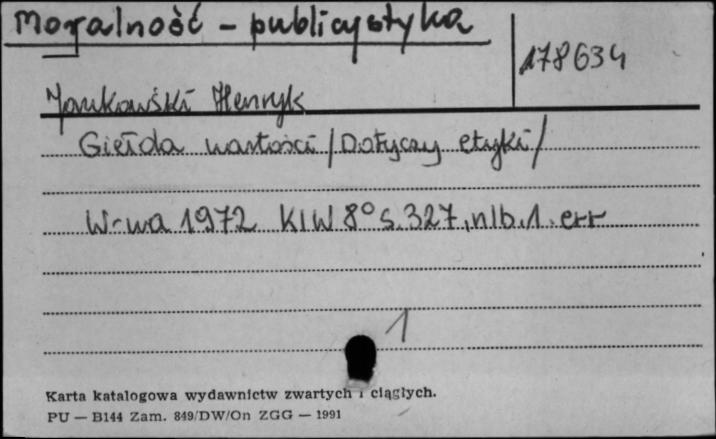 Moralność - publicystyka
178634
Jankowski Henryk
Giełda wartości /Dotyczy etyki/
W-wa 1972 KIW 8° s. 327, nlb. 1. err
1
Karta katalogowa wydawnictw zwartych i ciągłych.
PU — B144 Zam. 849/DW/On ZGG — 1991